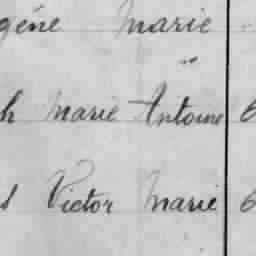 gène Marie
h Marie Antoine 6
s Victor Marie 6